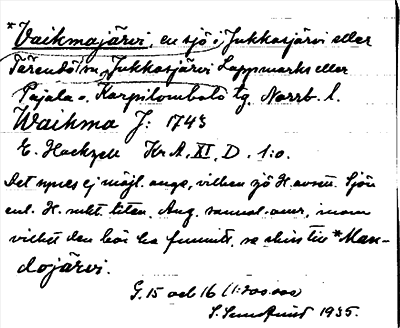 *Vaikmajärvi, en sjö i Jukkasjärvi eller
Tärendö sn, Jukkasjärvi Lappmarks eller
Pajala o. Korpilombolo tg. Norrb. l.
Waikma J: 1743
E. Hackzell Kr A. XI, D. 1:0.
Det synes ej möjl. ange, vilken sjö H. avsett. Sjön
enl. H. mkt liten. Ang. samml. omr, inom
vilket den bör ha funnits, se skiss till *Man-
dojärvi.
G. 15 och 16 (1:200.000)
S. Sundkvist 1935.